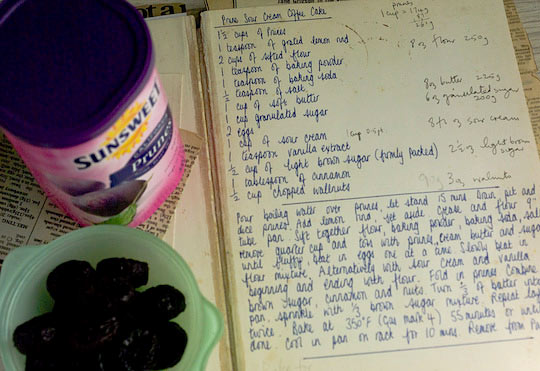 Prune Sour Cream Coffee Cake
prunes
1 cup =
1½ cups of Prunes
1 teaspoon of grated lemon rind
2 cups of sifted flour
8 oz flour 250g
1 teaspoon of baking powder
1 teaspoon of baking soda
½ teaspoon of salt
1 cup of soft butter
8oz butter 225g
1 cup granulated sugar
6 oz granulated sugar
200g
2 eggs
1 cup of sour cream
8fl oz sour cream
1 teaspoon vanilla extract
½ cup of light brown sugar (firmly packed)
2½ oz light brown
sugar
1 tablespoon of cinnamon
½ cup chopped wallnuts
3 oz walnuts
SUNSWEET
Prunes
Pour boiling water over prunes, let stand 15 mins. Drain, pit and
dice prunes. Add lemon rind, set aside. Grease and flour 9"
tube pan. Sift together flour, baking powder, baking soda, salt
remove quarter cup and toss with prunes, cream butter and sugar
until fluffy, beat in eggs one at a time. Slowly beat in
flour mixture, Alternatively with sour cream and vanilla
beginning and ending with flour. Fold in prunes. Combine
brown sugar, cinnamon and nuts. Turn ⅓ of batter into
pan, sprinkle with ⅓ brown sugar mixture. Repeat layers
twice. Bake at 350°F (Gas mark 4) 55 minutes or until
done. Cool in pan on rack for 10 mins. Remove from Pan